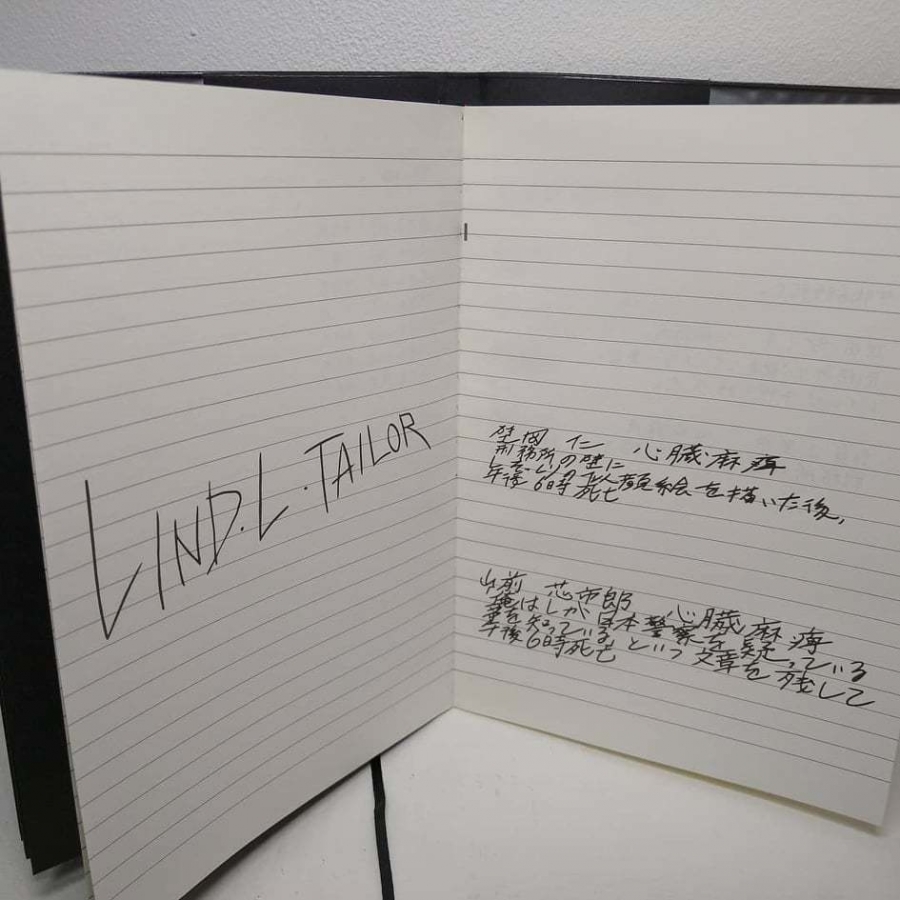 LIND.L.TAILOR
仁 心臓麻痺
刑務所の壁に
似顔絵を描いた後,
午後6時死亡
山前 芯市郎 心臓麻痺
俺はLが日本警察を疑っている
事を知っている、という文章を残して
午後6時死亡